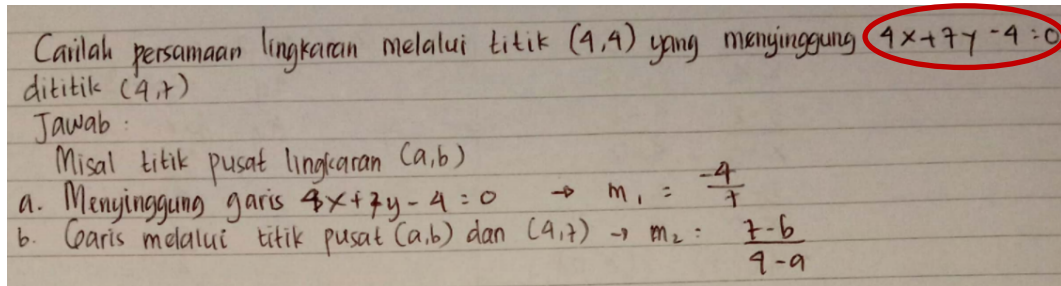 Carilah persamaan lingkaran melalui titik (4,4) yang menyinggung 4x+7y-4=0
dititik (4,7)
Jawab :
Misal titik pusat lingkaran (a,b)
a. Menyinggung garis 4x+7y-4=0 → m₁ = -4/7
b. Garis melalui titik pusat (a,b) dan (4,7) → m₂ = 7-b/4-a